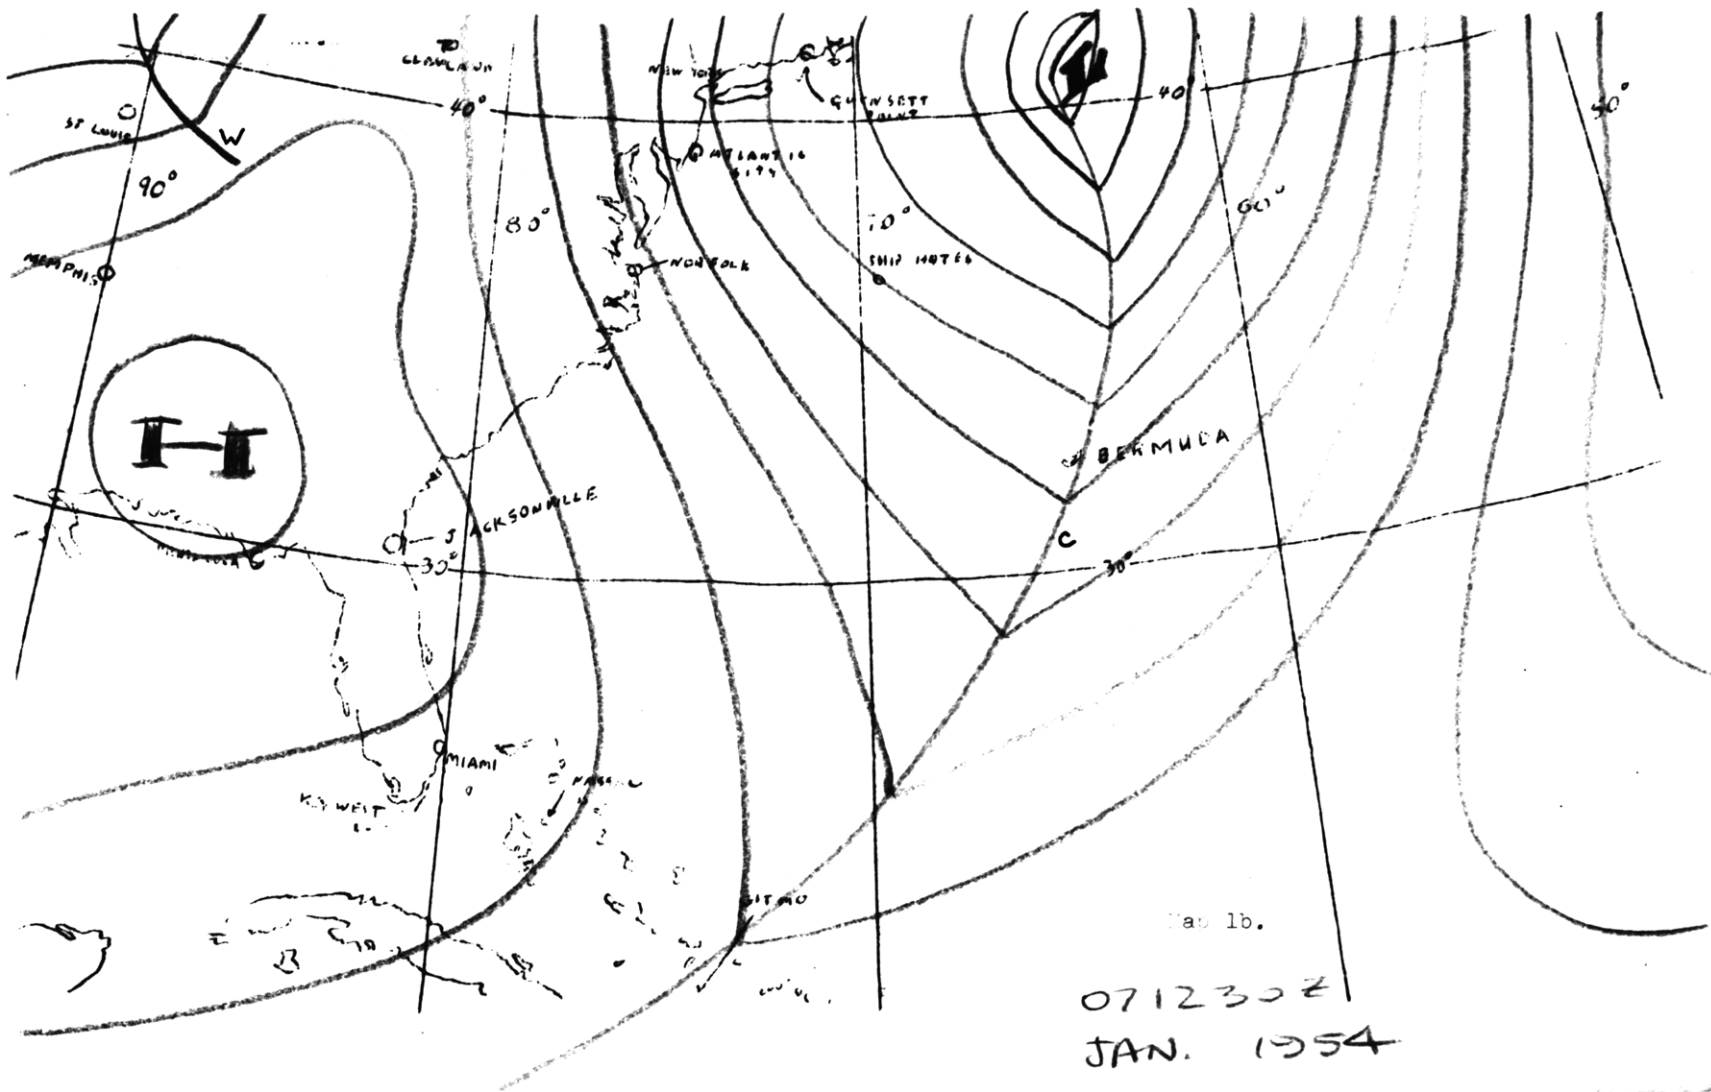 TO
CLEVELAND
NEW YORK
QUONSETT
POINT
40°
40°
50°
ST LOUIS
W
90°
ATLANTIC
CITY
80°
70°
60°
MEMPHIS
NORFOLK
SHIP HOTEL
H
L
BERMUDA
JACKSONVILLE
C
30°
30°
MIAMI
KEY WEST
NASSAU
GITMO
Map 1b.
071230Z
JAN. 1954